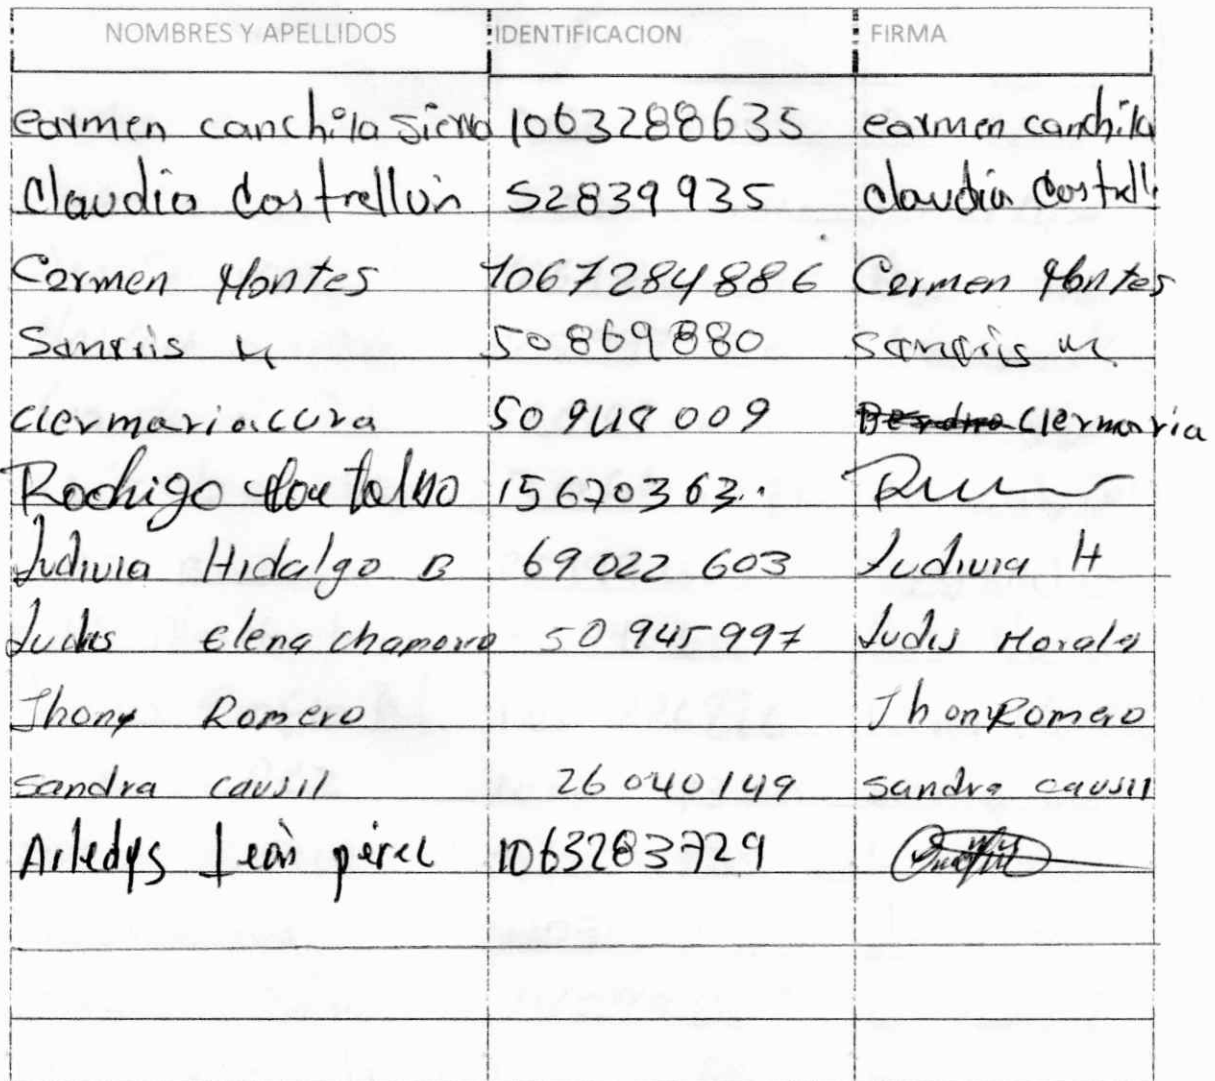 NOMBRES Y APELLIDOS IDENTIFICACION FIRMA
carmen canchila sierra 1063288635 carmen canchila
Claudia Castrellón 52839935 claudia Castrell
Carmen Montes 1067284886 Carmen Montes
Sanaris M 50869880 Sanaris M
clermaria cura 50948009 Clermaria
Rodrigo Montalvo 15670363.
Ludivia Hidalgo B 69022603 Ludivia H
Ludis elena chamorro 50945997 Ludis Morales
Jhony Romero Jhony Romero
sandra causil 26040149 sandra causil
Arledys León pérez 1063283729